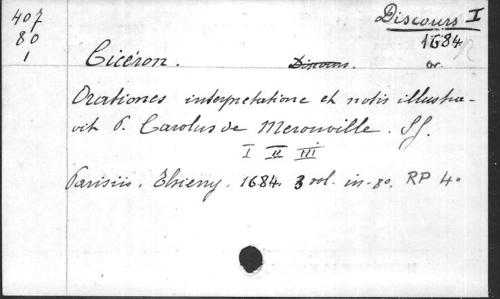 407
80
1
Discours I
1684
Cicéron. Discours. or.
Orationes interpretatione et notis illustra-
vit P. Carolus de Merouville. SJ.
I II III
Parisiis. Thierry. 1684. 3 vol. in-8o. RP 40